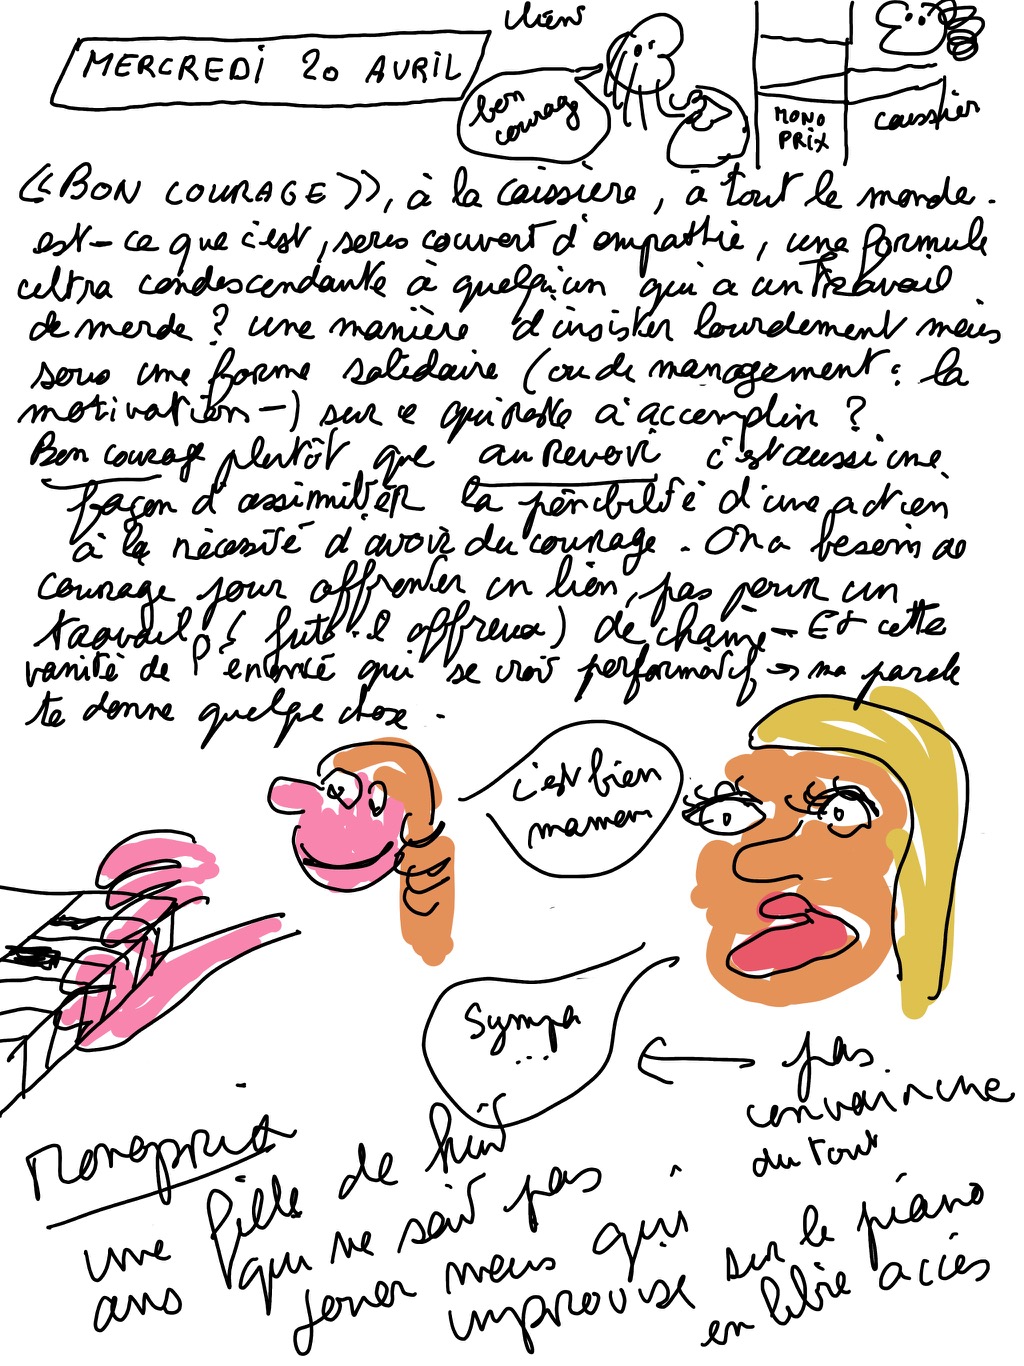 MERCREDI 20 AVRIL
client
bon
courage
MONO
PRIX
caissier
«BON COURAGE», à la caissière, à tout le monde.
est-ce que c'est, sous couvert d'empathie, une formule
ultra condescendante à quelqu'un qui a un travail
de merde ? une manière d'insister lourdement mais
sous une forme solidaire (ou de management : la
motivation-) sur ce qui reste à accomplir ?
Bon courage plutôt que au revoir c'est aussi une
façon d'assimiler la pénibilité d'une action
à la nécessité d'avoir du courage. On a besoin de
courage pour affronter un lion, pas pour un
travail (fut-il affreux) de chaîne - Et cette
vanité de l'énoncé qui se croit performatif → ma parole
te donne quelque chose.
c'est bien
maman
Sympa
...
pas
convaincue
du tout
Monoprix
une fille de huit
ans qui ne sait pas
jouer mais qui
improvise sur le piano
en libre accès